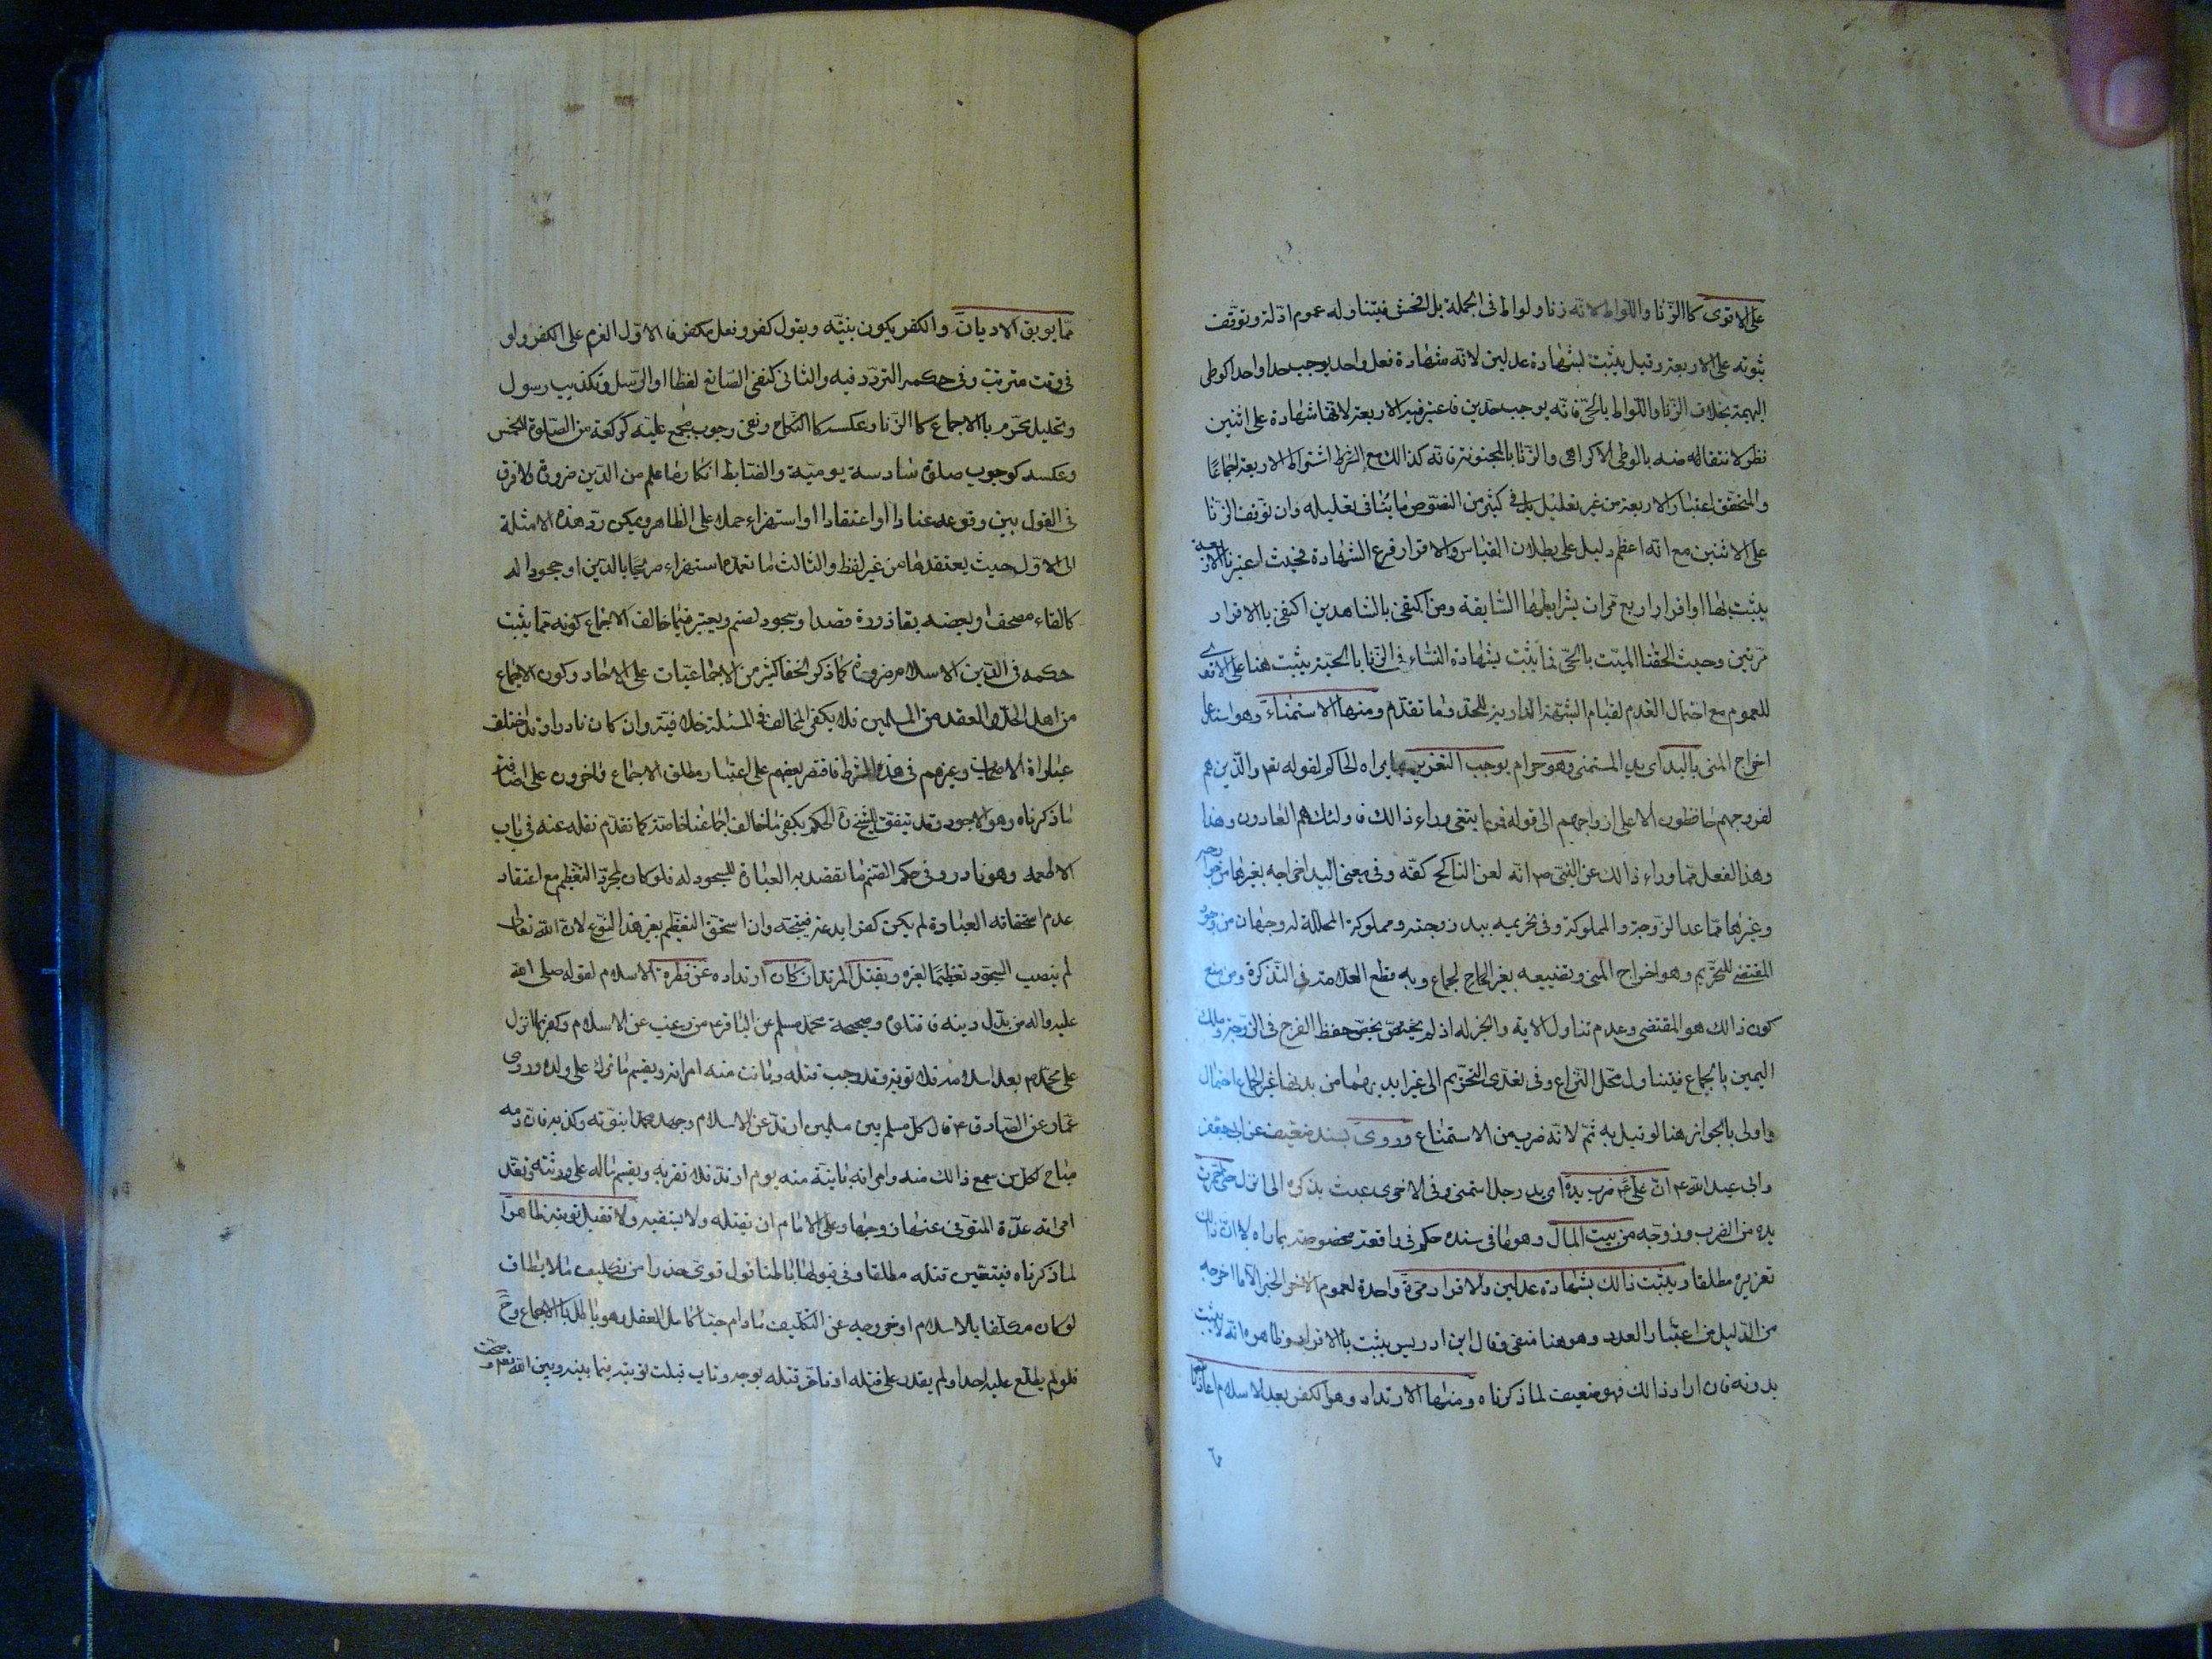 على الاقوى كالزنا واللواط لانه زنا ولواط فى الجملة بل افحش فيتناوله عموم ادلة وتوقف
ثبوته على الاربعة وقيل يثبت بشهادة عدلين لانه شهادة فعل واحد يوجب حدا واحدا كوطى
البهيمة بخلاف الزنا واللواط بالحى فانه يوجب حدين فاعتبر فيه الاربعة لانها شهادة على اثنين
نظر لانتقاضه بالوطى الاكراهى والزنا بالمجنونة فانه كذالك مع اشتراط الاربعة اجماعا
والمتحقق اعتبار الاربعة من غير تعليل بل فى كثير من النصوص ما ينافى تعليله وان توقف الزنا
على الاثنين مع انه اعظم دليل على بطلان القياس والاقرار فرع الشهادة فحيث اعتبرنا الاربعة
يثبت بها او اقرار اربع مرات بشرايطها السابقة ومن اكتفى بالشاهدين اكتفى بالاقرار
مرتين وحيث الحقنا الميت بالحى فما يثبت بشهادة النساء فى الزنا بالحية يثبت هنا على الاقوى
للعموم مع احتمال العدم لقيام الشبهة الدارية للحد وما تقدم ومنها الاستمناء وهو استدعا
اخراج المنى باليد اى يد المستمنى وهو حرام يوجب التعزير بما يراه الحاكم لقوله تعم والذين هم
لفروجهم حافظون الا على ازواجهم الى قوله فمن ابتغى وراء ذالك فاولئك هم العادون وهذا
وهذا الفعل مما وراء ذالك عن النبى ص انه لعن الناكح كفه وفى معنى اليد اخراجه بغيرها من جوارحه
وغيرها مما عدا الزوجة والمملوكة وفى تحريمه بيد زوجته ومملوكته المحللة له وجهان من وجود
المقتضى للتحريم وهو اخراج المنى وتضييعه بغير الجماع وبه قطع العلامة فى التذكرة ومن منع
كون ذالك هو المقتضى وعدم تناول الاية والخبر له اذ لم يخص حفظ الفرج فى الزوجة وملك
اليمين بالجماع فيتناول محل النزاع وفى تعدى التحريم الى غير ايديهما من بدنهما غير الجماع احتمال
واولى بالجواز هنا لو قيل به ثم لانه ضرب من الاستمتاع وروى بسند ضعيف عن ابى جعفر
وابى عبد الله ع ان عليا ع ضرب يده اى يد رجل استمنى وفى الاخرى عبث بذكره الى ان انزل حتى احمرت
يده من الضرب وزوجه من بيت المال وهو مافى سنده حكم فى واقعة مخصوصة بما راه لا ان ذالك
تعزيره مطلقا ويثبت ذالك بشهادة عدلين والاقرار مرة واحدة لعموم الخبر الا ما اخرجه
من الدليل من اعتبار العدد وهو هنا منفى وقال ابن ادريس يثبت بالاقرار وظاهره انه لا يثبت
بدونه فان اراد ذالك فهو ضعيف لما ذكرناه ومنها الارتداد وهو الكفر بعد الاسلام اعاذنا
مما يوبق الاديان والكفر يكون بنية وبقول كفر وفعل مكفر فالاول العزم على الكفر ولو
فى وقت مترقب وفى حكمه التردد فيه والثانى كنفى الصانع لفظا او الرسل وتكذيب رسول
وتحليل محرم بالاجماع كالزنا وعكسه كالنكاح ونفى وجوب مجمع عليه كركعة من الصلوة الخمس
وعكسه كوجوب صلوة سادسة يومية والضابط انكار ما علم من الدين ضرورة ولا فرق
فى القول بين وقوعه عنادا او اعتقادا او استهزاء حملا على الظاهر ويمكن رد هذه الامثلة
الى الاول حيث يعتقدها من غير لفظ والثالث ما تعمده استهزاء صريحا بالدين او جحودا له
كالقاء مصحف او بعضه بقاذورة قصدا وسجود لصنم ويعتبر فيما خالف الاجماع كونه مما يثبت
حكمه فى الدين الاسلام ضرورة كما ذكر لخفاء كثير من الاجماعيات على الاحاد وكون الاجماع
من اهل الحل والعقد من المسلمين فلا يكفر المخالف فى المسئلة خلافية وان كان نادرا وقد اختلف
عباراة الاصحاب وغيرهم فى هذا الشرط فاقتصر بعضهم على اعتبار مطلق الاجماع واخرون على اضافة
ما ذكرناه وهو الاجود وقد يتفق للشيخ ره الحكم بكفر ما خالف اجماعنا خاصة كما تقدم نقله عنه فى باب
الاطعمه وهو نادر وفى حكم الصنم ما يقصد به العبادة للسجود له فلو كان لمجرد التعظيم مع اعتقاد
عدم استحقاقه العبادة لم يكن كفرا بدعة قبيحة وان استحق التعظيم بغير هذا النوع لان الله تعالى
لم ينصب السجود تعظيما لغيره ويقتل المرتد ان كان ارتداده عن فطرة الاسلام لقوله صلى الله
عليه واله من بدل دينه فاقتلوه وصحيحة محمد مسلم عن الباقر ع من رغب عن الاسلام وكفر بما انزل
على محمد ص بعد اسلامه فلا توبة وقد وجب قتله وبانت منه امراته ويقسم ما ترك على ولده وروى
عمار عن الصادق ع قال كل مسلم بين مسلمين ارتد عن الاسلام وجحد محمدا بنوته وكذبه فان دمه
مباح لكل من سمع ذالك منه وامراته باينة منه يوم ارتد فلا تقربه ويقسم ماله على ورثته وتعتد
امراته عدة المتوفى عنها زوجها وعلى الامام ان يقتله ولا يستتيبه ولا تقبل توبته ظاهرا
لما ذكرناه فيتعين قتله مطلقا وفى قبولها باطنا قول قوى حذرا من تكليف ما لا يطاق
لو كان مكلفا بالاسلام او خروجه عن التكليف ما دام حيا كامل العقل وهو باطل بالاجماع وح
فلو لم يطلع عليه احد او لم يقدر على قتله او تاخر قتله بوجه وتاب قبلت توبته فيما بينه وبين الله تعم وصحت